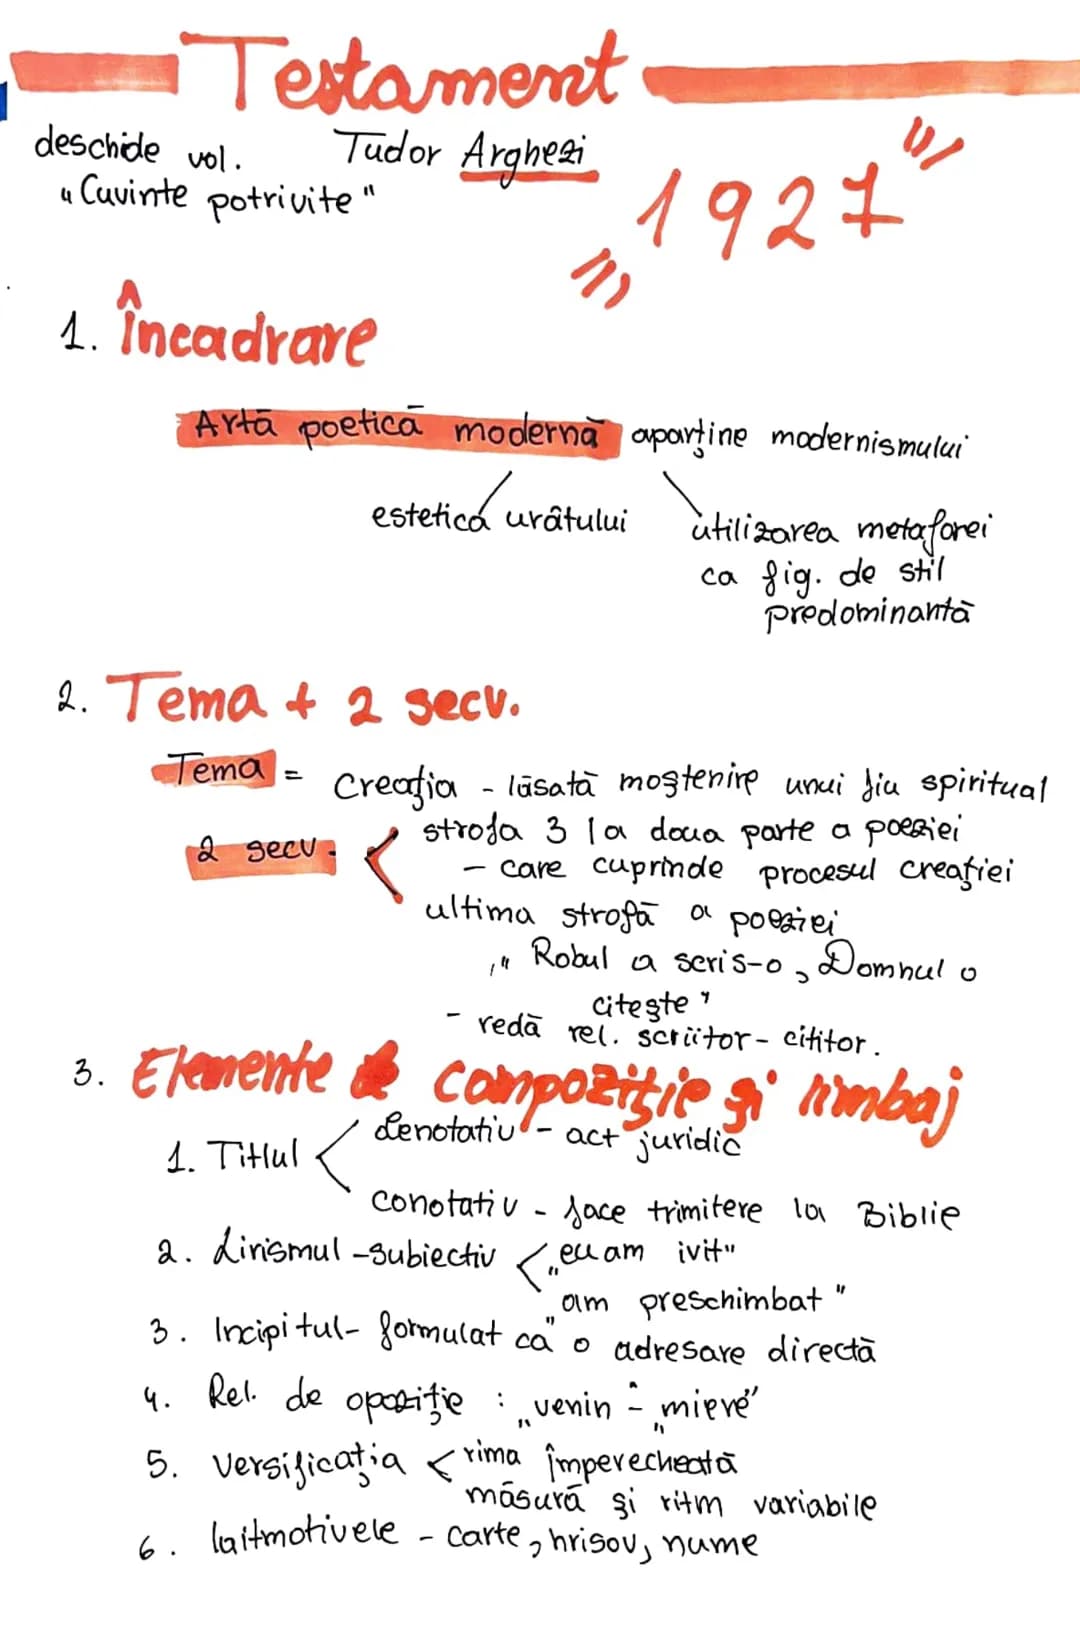 Testament
deschide vol. Tudor Arghezi
„Cuvinte potrivite" 1927
1. Încadrare
Artă poetică modernă aparține modernismului
estetica urâtului utilizarea metaforei
ca fig. de stil
predominantă
2. Tema + 2 secv.
Tema = Creația - lăsată moștenire unui fiu spiritual
2 secv. < strofa 3 / a doua parte a poeziei
- care cuprinde procesul creației
ultima strofă a poeziei
„Robul a scris-o, Domnul o
citește"
- redă rel. scriitor - cititor.
3. Elemente de compoziție și limbaj
1. Titlul < denotativ - act juridic
conotativ - face trimitere la Biblie
2. Lirismul - subiectiv < „eu am ivit"
„am preschimbat"
3. Incipitul - formulat ca o adresare directă
4. Rel. de opoziție : „venin" - „miere"
5. Versificația < rima împerecheată
măsură și ritm variabile
6. laitmotivele - carte, hrisov, nume